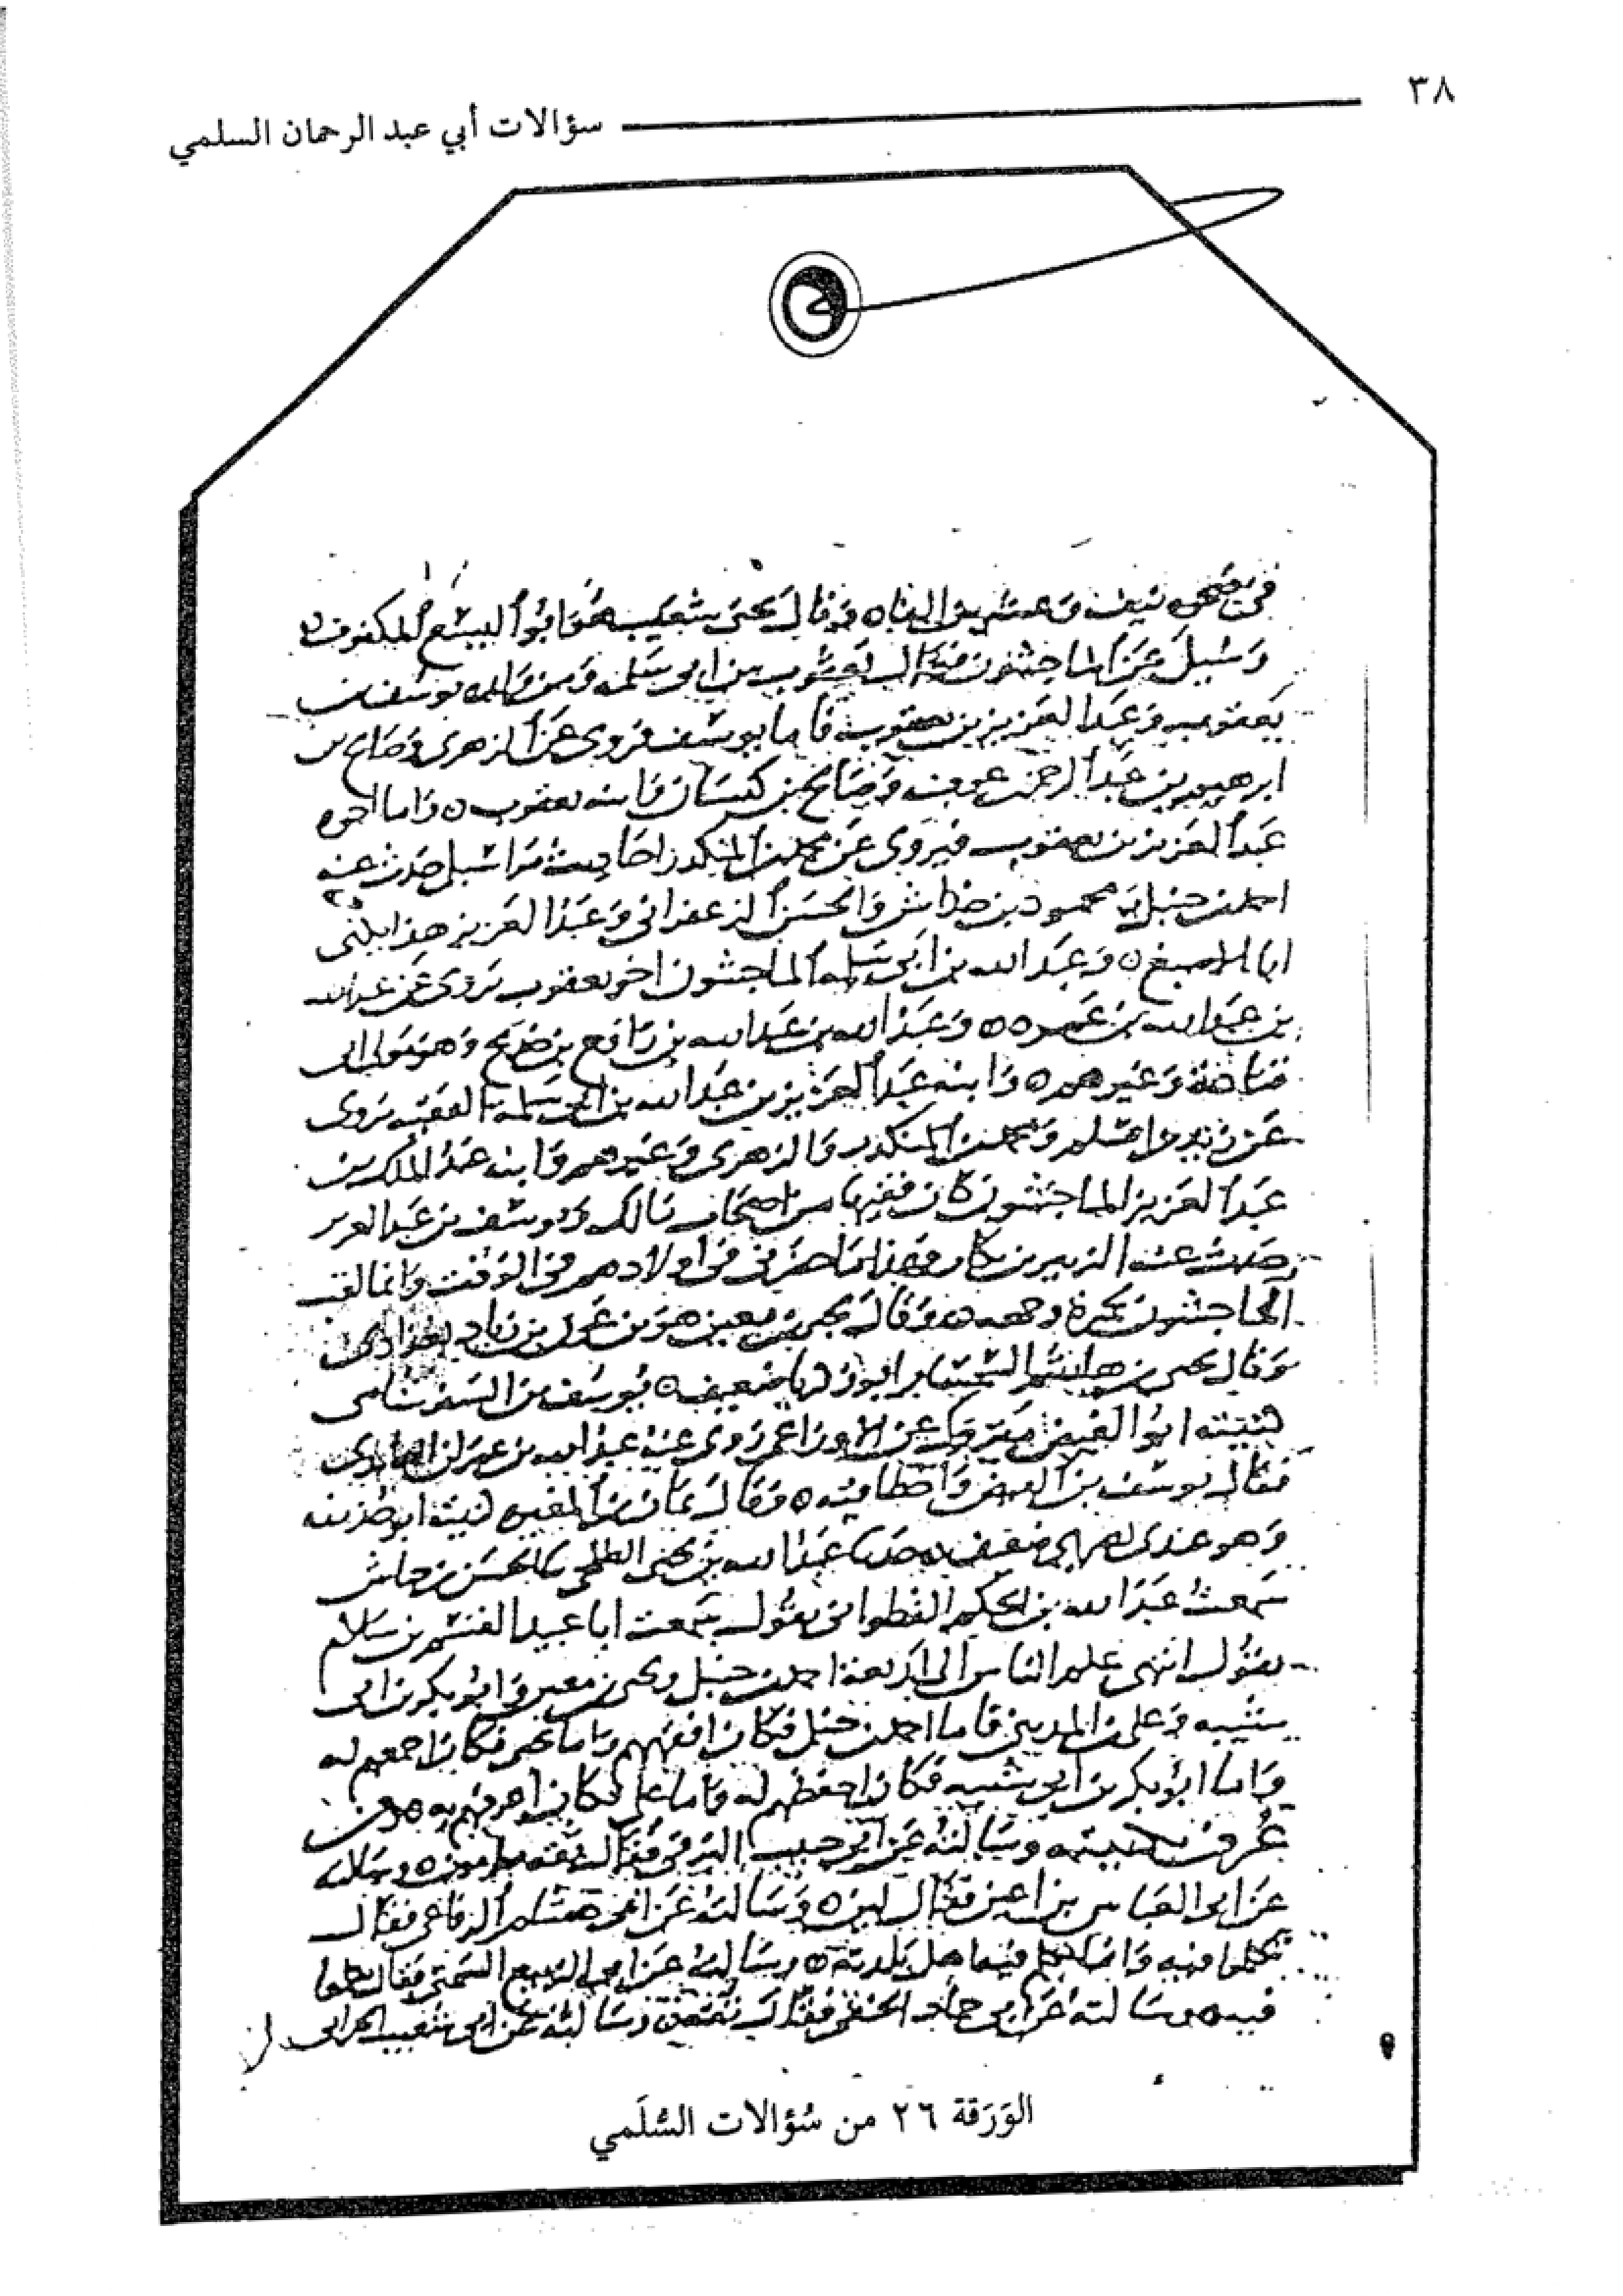 ٣٨
سؤالات أبي عبد الرحمان السلمي
في نيف وعشرين وقال يحيى شعيب هو ابو اليسع المكفوف
وسيل عن الماجشون فقال يعقوب بن ابي سلمه ومن ولده يوسف بن
يعقوب وعبد العزيز بن يعقوب فاما يوسف فروى عن الزهري وصالح بن
ابرهيم بن عبد الرحمن بن عوف وصالح بن كيسان وابنه يعقوب واما اخوه
عبد العزيز بن يعقوب فيروى عن محمد بن المنكدر احاديث مراسيل حدث عنه
احمد بن حنبل ومحمود بن خداش والحسن الزعفراني وعبد العزيز هذا يكنى
ابا الاصبغ وعبد الله بن ابي سلمه الماجشون اخو يعقوب يروى عن عبد الله
بن عبد الله بن عمر وعبد الله بن عبد الله بن رافع بن خديج وهو مولى ابي
قتادة وغيرهم وابنه عبد العزيز بن عبد الله بن ابي سلمة الفقيه يروى
عن زيد بن اسلم ومحمد بن المنكدر والزهرى وغيرهم وابنه عبد الملك بن
عبد العزيز الماجشون كان فقيها من اصحاب مالك ويوسف بن عبد العزيز
حدث عنه الزبير بن بكار فهذا ما حضرني في اولادهم في الوقت وانما لقب
الماجشون لحمرة وجهه وقال يحيى بن معين هو بن عون بن زياد بغدادى
وقال يحيى بن هاشم السمسار ابو زكريا ضعيف يوسف بن السفر شامى
كنيته ابو الفيض متروك عن الاوزاعى روى عنه عبد الله بن عمران العابدى
فقال يوسف بن الفيض واخطا فيه وقال عثمان بن المغيره كنيته ابو
وهو عندى ضعيف حدثنا عبد الله بن يحيى الطلحى ثنا الحسن بن
سمعت عبد الله بن الحكم القطوانى يقول سمعت ابا عبيد القسم بن سلام
يقول انتهى علم الناس الى اربعة احمد بن حنبل ويحيى بن معين وابو بكر بن ابى
شيبه وعلى بن المدينى فاما احمد بن حنبل فكان افقههم واما يحيى فكان اجمعهم له
واما ابو بكر بن ابى شيبه فكان احفظهم له واما على فكان اعرفهم به من
عرف بكنيته وسالته عن ابى حبيب فقال ثقه مامون وسالته
عن ابى العباس بن اعين فقال لين وسالته عن ابى هشام الرفاعى فقال
تكلموا فيه وانما تكلم فيه اهل بلدته وسالته عن ابى الربيع السمتى فقال تكلموا
فيه وسالته عن ابى حماد الحنفى فقال ضعيف وسالته عن ابى شعيب الحرانى
الوَرَقة ٢٦ من سُؤالات السُّلَمي